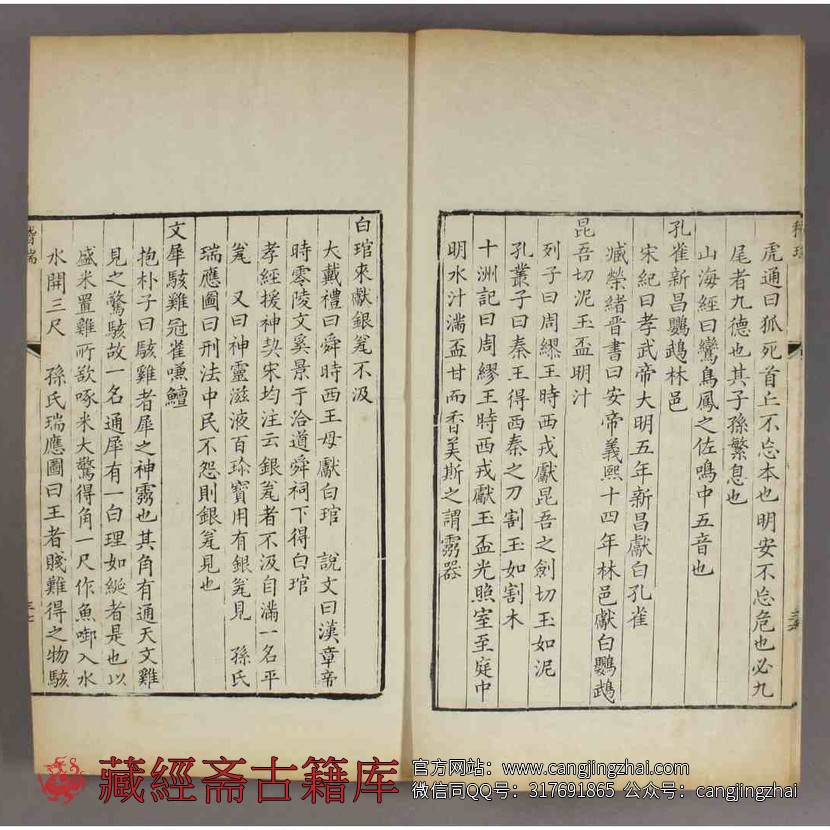 稽瑞
虎通曰狐死首丘不忘本也明安不忘危也必九
尾者九德也其子孫繁息也
山海經曰鸞鳥鳳之佐鳴中五音也
孔雀新昌鸚鵡林邑
宋紀曰孝武帝大明五年新昌獻白孔雀
臧榮緒晉書曰安帝義熙十四年林邑獻白鸚鵡
昆吾切泥玉盃明汁
列子曰周繆王時西戎獻昆吾之劍切玉如泥
孔叢子曰秦王得西秦之刀割玉如割木
十洲記曰周繆王時西戎獻玉盃光照室至庭中
明水汁滿盃甘而香美斯之謂靈器
白琯來獻銀瓮不汲
大戴禮曰舜時西王母獻白琯 說文曰漢章帝
時零陵文奚景于泠道舜祠下得白琯
孝經援神契宋均注云銀瓮者不汲自滿一名平
瓮 又曰神靈滋液百珍寶用有銀瓮見 孫氏
瑞應圖曰刑法中民不怨則銀瓮見也
文犀駭雞冠雀嗛鱣
抱朴子曰駭雞者犀之神靈也其角有通天文雞
見之驚駭故一名通犀有一白理如綖者是也以
盛米置雞所欲啄米大驚得角一尺作魚啣入水
水開三尺 孫氏瑞應圖曰王者賤難得之物駭
稽瑞
藏經斋古籍库
官方网站：www.cangjingzhai.com
微信同QQ号：317691865 公众号：cangjingzhai